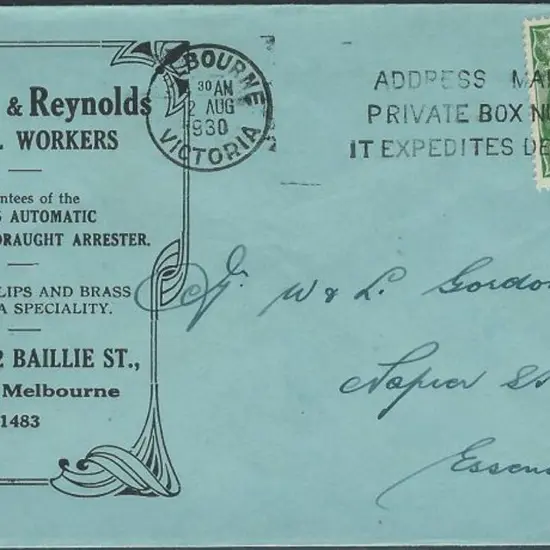 & Reynolds
WORKERS
ntees of the
AUTOMATIC
DRAUGHT ARRESTER.
LIPS AND BRASS
A SPECIALITY.
2 BAILLIE ST.,
Melbourne
1483
LBOURNE
30 AM
2 AUG
1930
VICTORIA
ADDRESS MA
PRIVATE BOX N
IT EXPEDITES DE
W & L. Gordo
Napier St
Essen